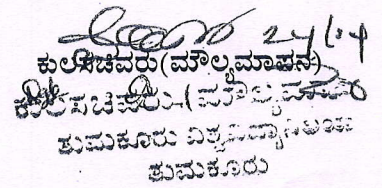 24/14
ಕುಲಸಚಿವರು(ಮೌಲ್ಯಮಾಪನ)
ಕುಲಸಚಿವರು (ಮೌಲ್ಯಮಾಪನ)
ತುಮಕೂರು ವಿಶ್ವವಿದ್ಯಾನಿಲಯ
ತುಮಕೂರು